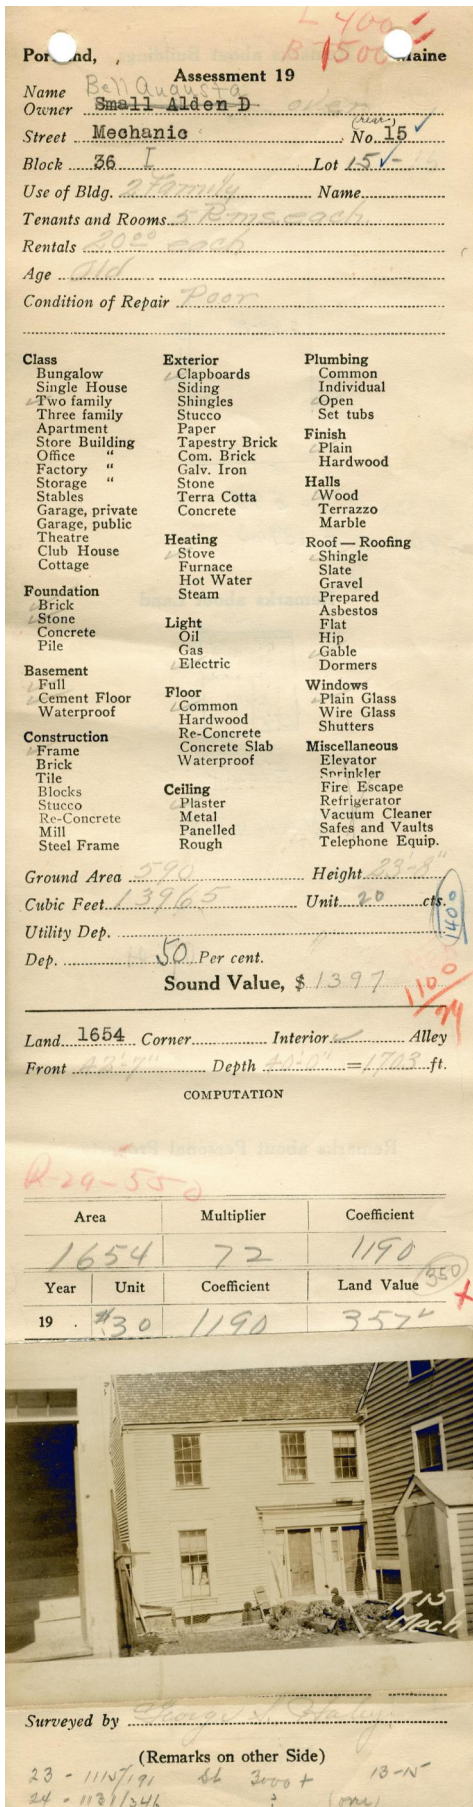 L 400
B 1500
Portland, , Maine
Assessment 19
Name Bell Augusta
Owner Small Alden D over
(rear)
Street Mechanic No. 15 ✓
Block 36 I Lot 15 ✓- 15
Use of Bldg. 2 Family Name
Tenants and Rooms 5 Rms each
Rentals 20.00 each
Age old
Condition of Repair Poor
Class
Bungalow
Single House
✓Two family
Three family
Apartment
Store Building
Office "
Factory "
Storage "
Stables
Garage, private
Garage, public
Theatre
Club House
Cottage
Foundation
✓Brick
✓Stone
Concrete
Pile
Basement
✓Full
✓Cement Floor
Waterproof
Construction
✓Frame
Brick
Tile
Blocks
Stucco
Re-Concrete
Mill
Steel Frame
Exterior
✓Clapboards
Siding
Shingles
Stucco
Paper
Tapestry Brick
Com. Brick
Galv. Iron
Stone
Terra Cotta
Concrete
Heating
✓Stove
Furnace
Hot Water
Steam
Light
Oil
Gas
✓Electric
Floor
✓Common
Hardwood
Re-Concrete
Concrete Slab
Waterproof
Ceiling
✓Plaster
Metal
Panelled
Rough
Plumbing
Common
Individual
✓Open
Set tubs
Finish
✓Plain
Hardwood
Halls
✓Wood
Terrazzo
Marble
Roof — Roofing
✓Shingle
Slate
Gravel
Prepared
Asbestos
Flat
Hip
✓Gable
Dormers
Windows
✓Plain Glass
Wire Glass
Shutters
Miscellaneous
Elevator
Sprinkler
Fire Escape
Refrigerator
Vacuum Cleaner
Safes and Vaults
Telephone Equip.
Ground Area 590 Height 23'-8"
Cubic Feet 13965 Unit 20 cts.
1400
Utility Dep.
Dep. 50 Per cent.
Sound Value, $ 1397
1100/29
Land 1654 Corner Interior ✓ Alley
Front 42'-7" Depth 40'-0" = 1703 ft.
COMPUTATION
R-29-550
Area Multiplier Coefficient
1654 72 1190
Year Unit Coefficient Land Value 350
19 . $30 1190 357
R 15
Mech
Surveyed by George S. Haley
(Remarks on other Side)
23 - 1115/191 3000 + 13-15
24 - 1131/346